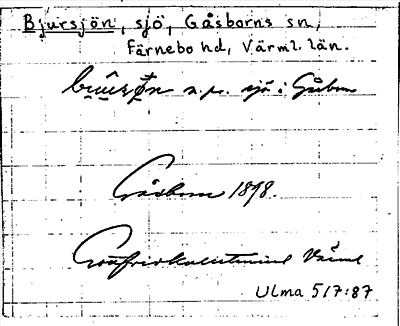 Bjursjön, sjö, Gåsborns sn,
Färnebo hd, Värml. län.
n.pr. sjö i Gåsborn
Gåsborn 1898.
Värml
Ulma 517:87